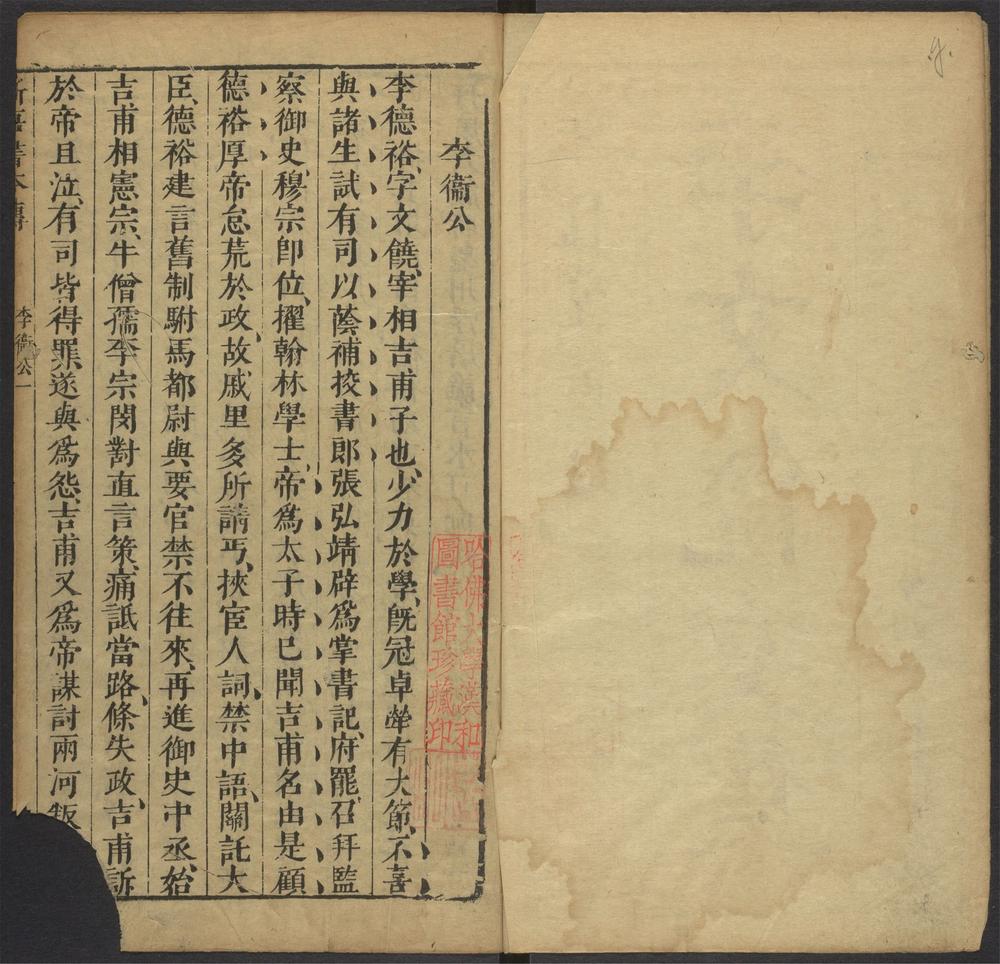 李衞公
李德裕、字文饒、宰相吉甫子也、少力於學、旣冠卓犖有大節、不喜
與諸生試有司以蔭補挍書郎張弘靖辟爲掌書記、府罷、召拜監
察御史、穆宗卽位、擢翰林學士、帝爲太子時已聞吉甫名由是顧
德裕厚帝怠荒於政、故戚里多所請丐、挾宦人詗禁中語、關託大
臣、德裕建言舊制駙馬都尉與要官禁不往來、再進御史中丞、始
吉甫相憲宗、牛僧孺李宗閔對直言策、痛詆當路、條失政、吉甫訴
於帝且泣、有司皆得罪、遂與爲怨、吉甫又爲帝謀討兩河叛
李衞公一
哈佛大學漢和
圖書館珍藏印